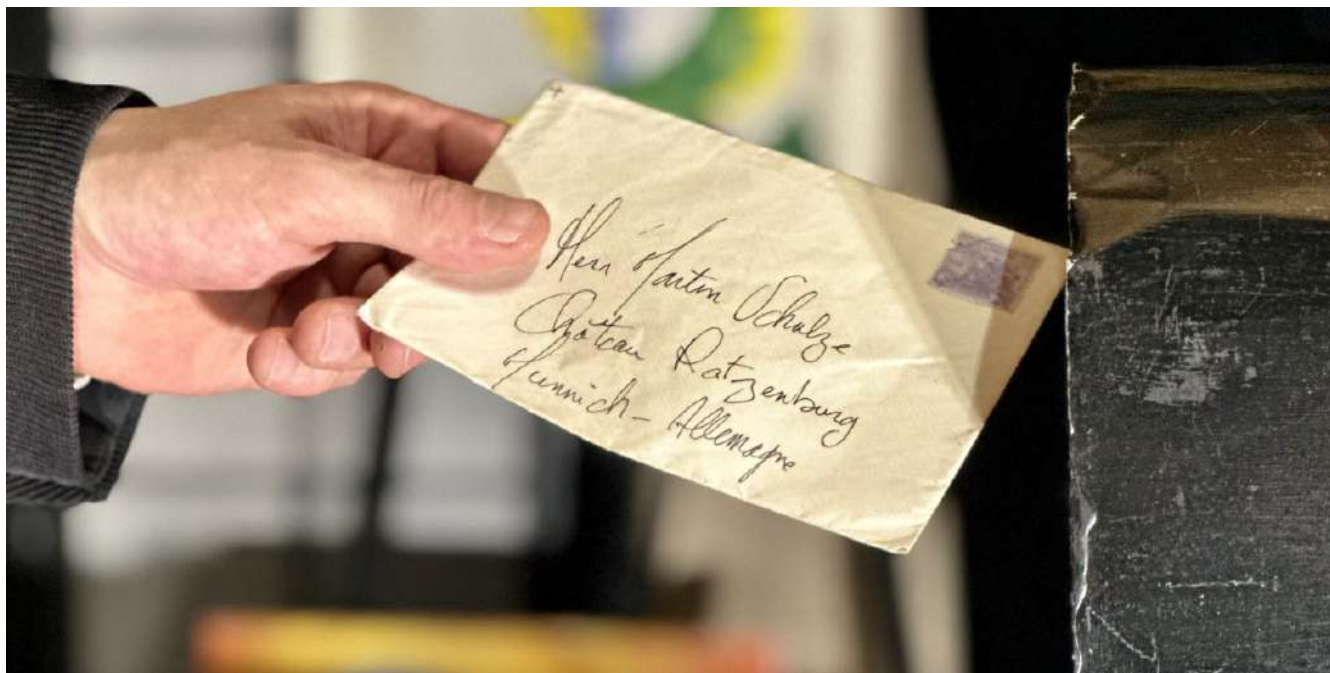 Herr Martin Schulze
Château Ratzenburg
Munnich - Allemagne